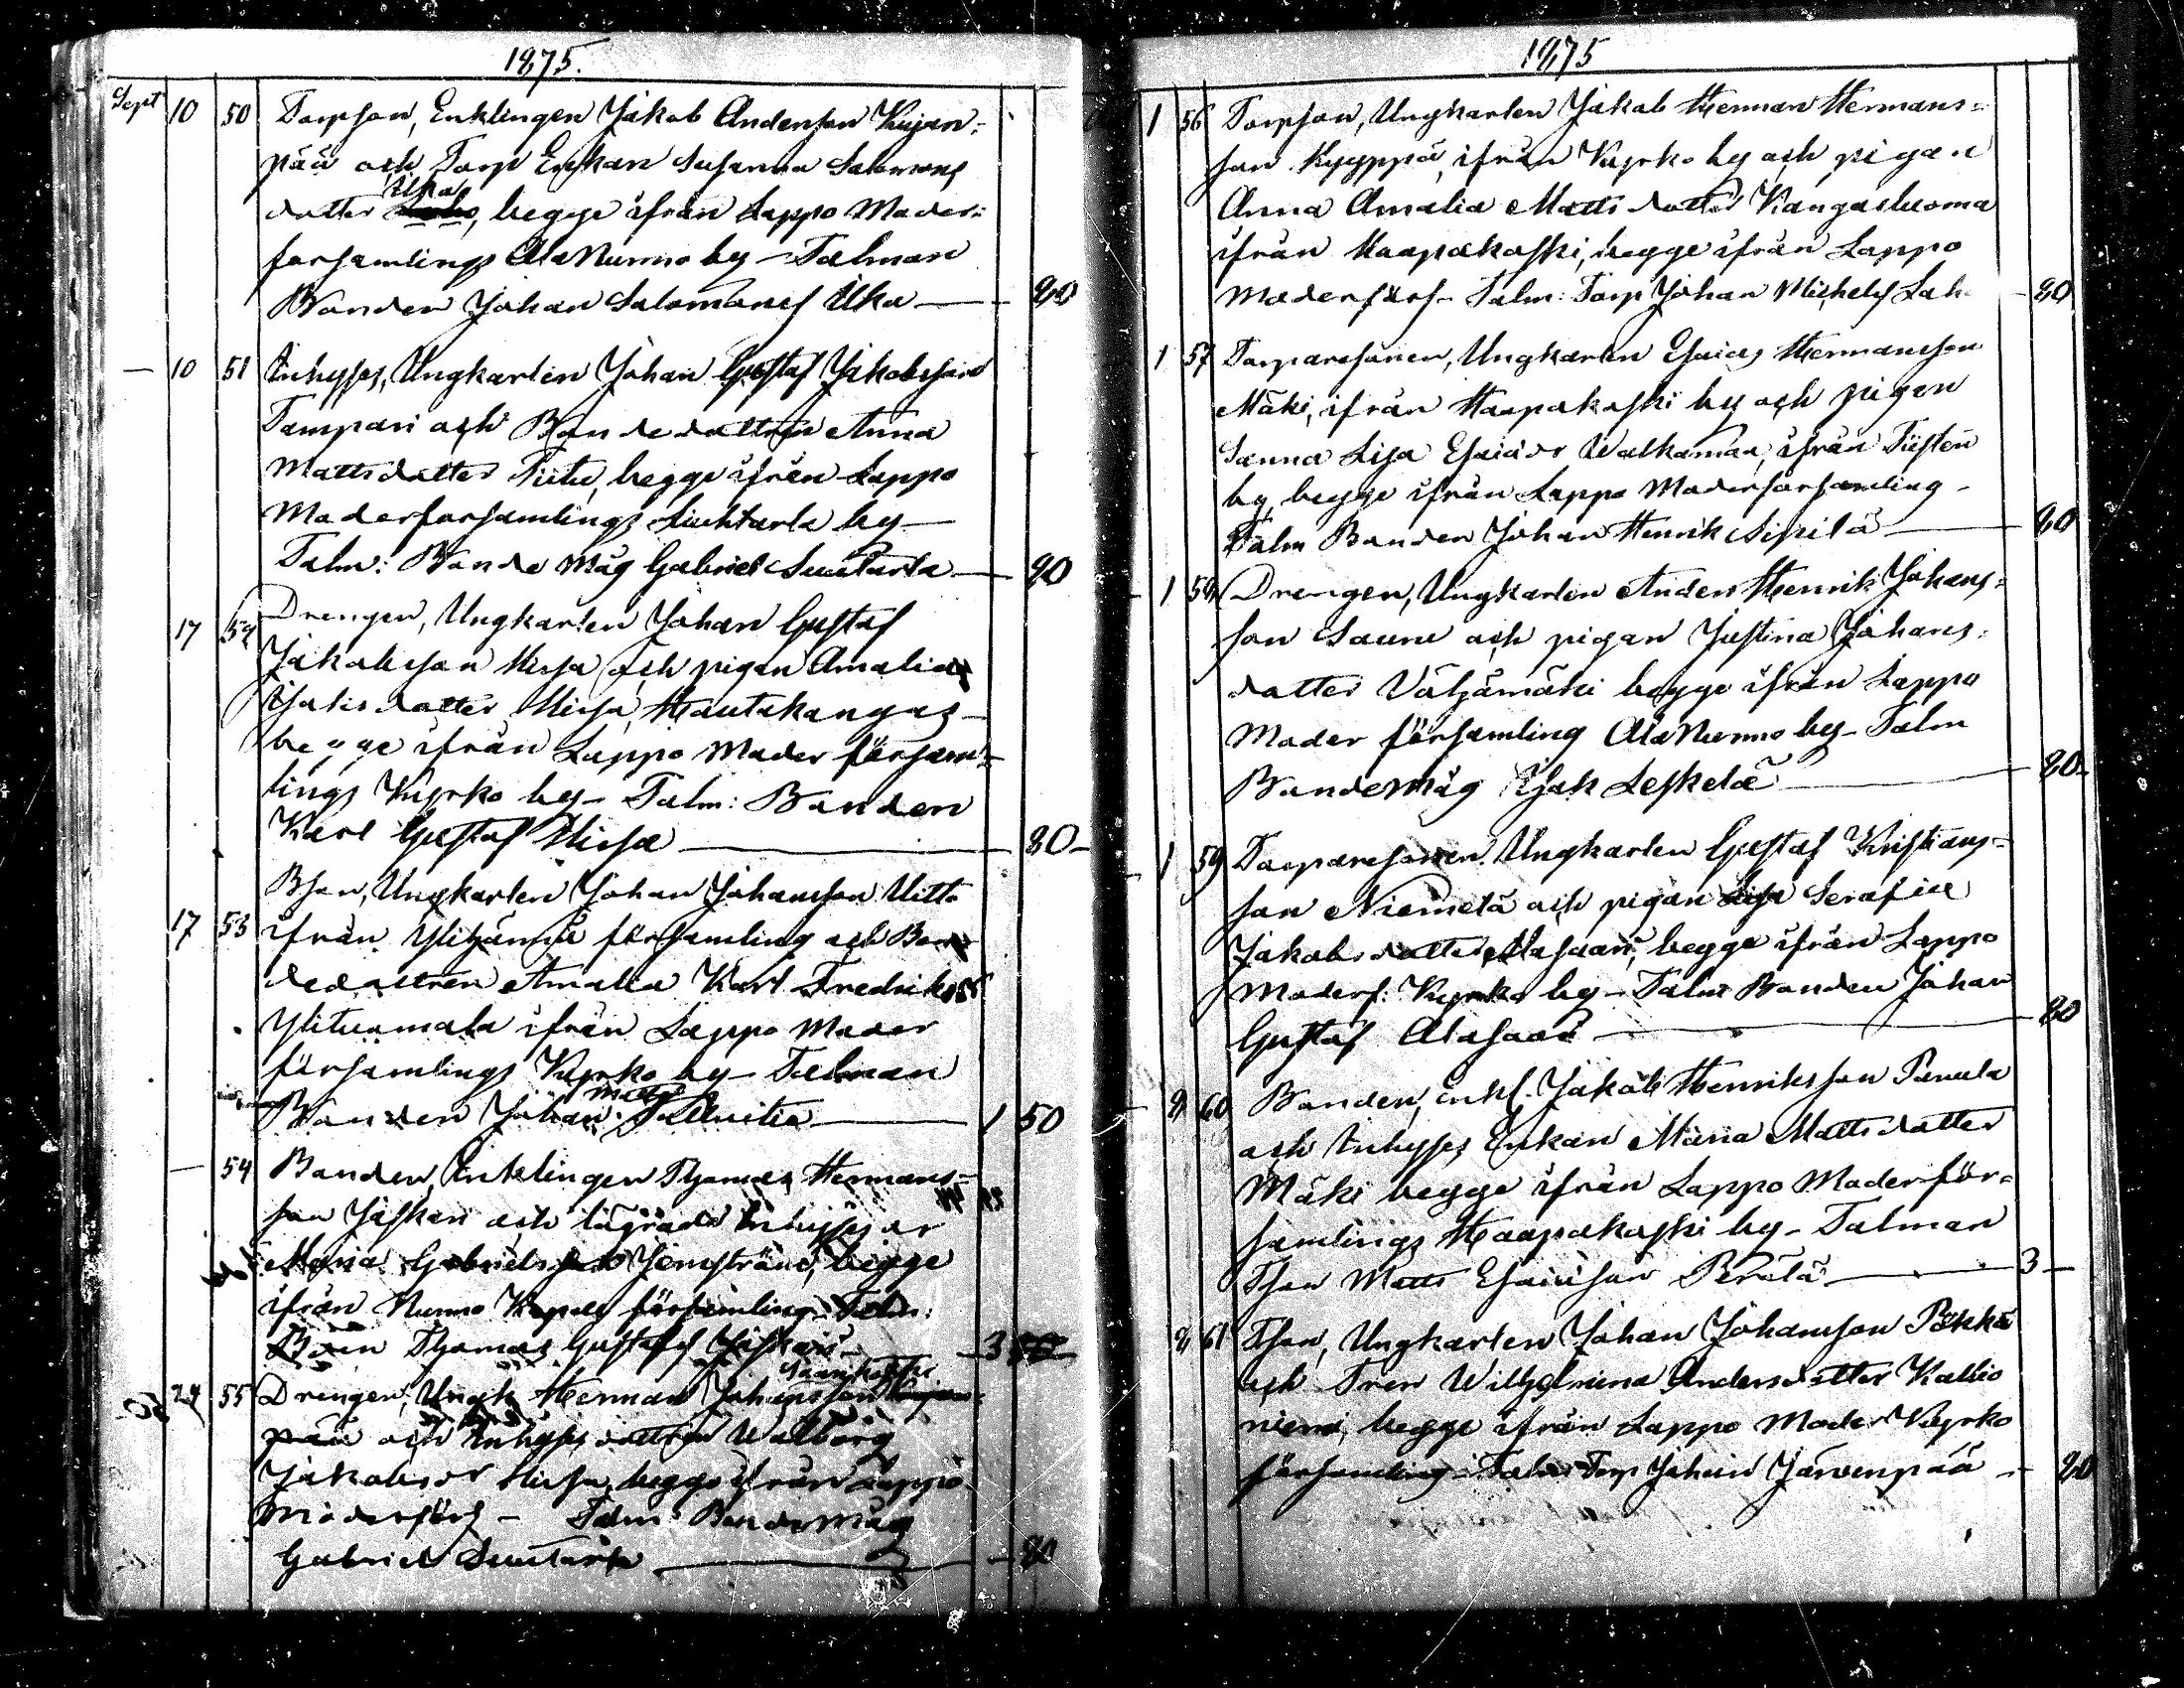 1875.
Sept 10 50 Torpson, Enklingen Jakob Anderson Kujan-
pää och Torp Enkan Susanna Salomons
dotter Ilka, begge ifrån Lappo Moder-
forsamlings Ala Nurmo by - Talman
Bonden Johan Salomons Ilka - 80
- 10 51 Inhyses, Ungkarlen Johan Gustaf Jakobsson
Tampari och Bondedottren Anna
Mattsdotter Tiitu, begge ifrån Lappo
Moderforsamlings Liuhtarla by -
Talm: Bonde Måg Gabriel Luutarla - 80
17 52 Drengen, Ungkarlen Johan Gustaf
Jakobsson Hirsa och pigan Amalia
Isaksdotter Hirsa, Hautakangas -
begge ifrån Lappo Moder försam-
lings Kyrko by - Talm: Bonden
Karl Gustaf Hirsa - 80 -
Bson, Ungkarlen Johan Johansson Uitto
17 53 ifrån Ylihärmä församling och Bon-
dedottren Amalia Karl Fredriks
Ylituomala ifrån Lappo Moder
församlings Kyrko by - Talman
Bonden Johan Matts - 1 50
- 54 Bonden, Enklingen Thomas Hermans-
son Jåskari och lägrade Inhyses
Maria Gabriels begge
ifrån Nurmo Kapell församling - Talm:
Thomas Gustafs Jåskari - 3
24 55 Drengen, Ungk Herman Johansson
pää och Inhyses dottren Walborg
Jakobsdr Hirsa, begge ifrån Lappo
Moderförs - Talm: Bondemåg
Gabriel Luutarla - 80
1875
1 56 Torpson, Ungkarlen Jakob Herman Hermans-
son Kyyppä, ifrån Kyrko by och pigan
Anna Amalia Matts dotter Kangasluoma
ifrån Haapakoski, begge ifrån Lappo
Moderförs - Talm: Torp Johan Michels - 80
1 57 Torparesonen, Ungkarlen Esaias Hermansson
Mäki, ifrån Haapakoski by och pigan
Sanna Lisa Esaiadr Walkamaa, ifrån Tiisten
by, begge ifrån Lappo Moderforsamling -
Talm Bonden Johan Henrik Sipilä - 80
- 1 58 Drengen, Ungkarlen Anders Henrik Johans-
son Saunu och pigan Justina Johans-
dotter Väljämäki begge ifrån Lappo
Moder församling Ala Nurmo by - Talm
Bondemåg Isak Leskelä - 80 -
- 1 59 Torparesonen Ungkarlen Gustaf Kristians-
son Niemelä och pigan Lisa Serafia
Jakobsdotter Alasaari, begge ifrån Lappo
Moderf: Kyrko by - Talm Bonden Johan
Gustaf Alasaari - 80
- 8 60 Bonden, enkl. Jakob Henriksson Panula
och Inhyses Enkan Maria Mattsdotter
Mäki begge ifrån Lappo Moderför-
samlings Haapakoski by - Talman
Tson Matts Esaiasson Perälä - 3 -
8 61 Tson, Ungkarlen Johan Johansson Pökkä
och Tren Wilhelmina Andersdotter Kallio
niemi, begge ifrån Lappo Moder Kyrko
församling - Talm Torp Johan Järvenpää - 80